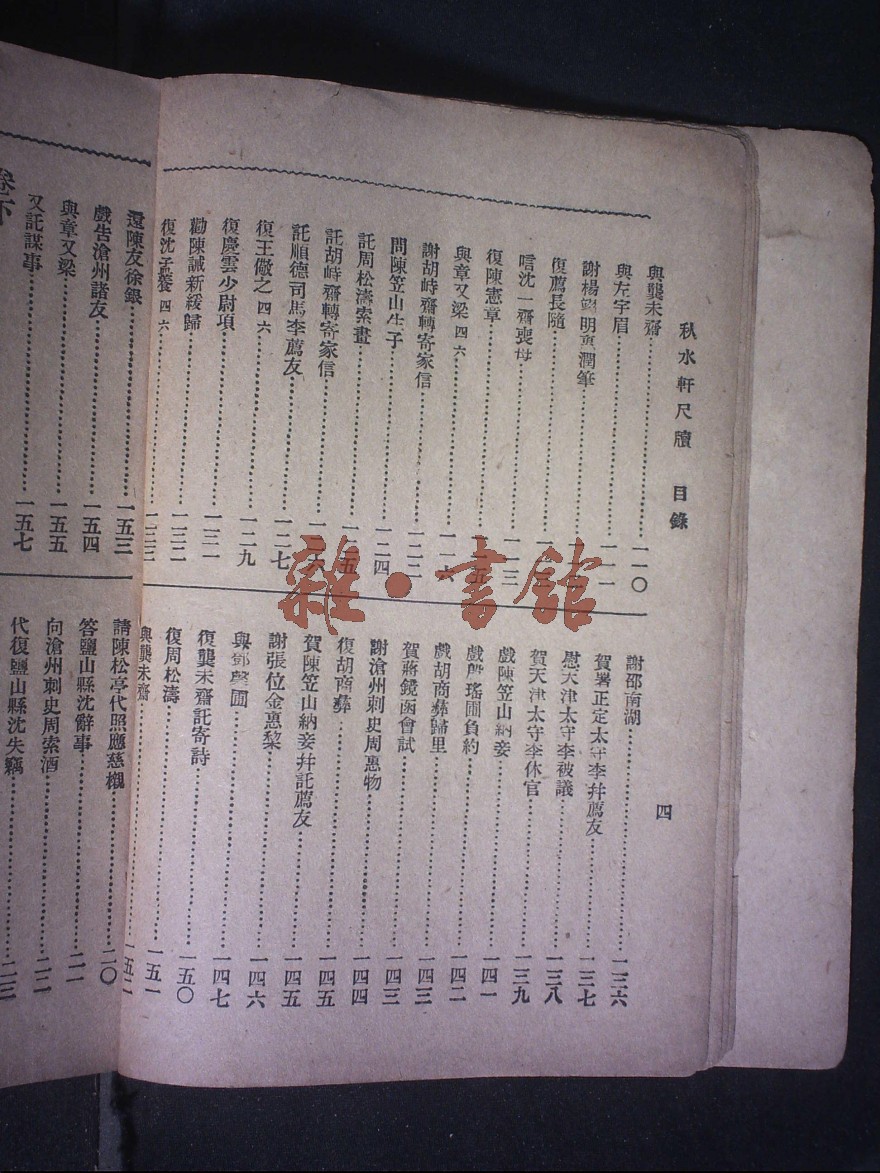 秋水軒尺牘 目錄 四
與龔未齋 一一〇
與左宇眉 一一一
謝楊 明 潤筆
復薦長隨
唁沈一齋喪母 一一三
復陳憲章 一一五
與章又梁 四六 一一六
謝胡峙齋轉寄家信 一二二
問陳笠山生子 一二四
託周松濤索畫 一二五
託胡峙齋轉寄家信 一二六
託順德司馬李薦友 一二七
復王儆之 四六 一二九
復慶雲少尉項 一三一
勸陳誠新緩歸 一三二
復沈 四六 一三三
謝邵南湖 一三六
賀署正定太守李幷薦友 一三七
慰天津太守李被議 一三八
賀天津太守李休官 一三九
戲陳笠山納妾 一四一
戲 瑤圃負約 一四二
戲胡商彝歸里 一四三
賀蔣鏡函會試 一四三
謝滄州刺史周惠物 一四四
復胡商彝 一四五
賀陳笠山納妾幷託薦友 一四五
謝張位金惠棃 一四六
與鄧 圃 一四七
復龔未齋託寄詩 一五〇
復周松濤 一五一
與龔未齋 一五二
還陳友徐銀 一五三
戲告滄州諸友 一五四
與章又梁 一五五
又託謀事 一五七
卷下
請陳松亭代照應慈櫬 二〇
答鹽山縣沈辭事 二一
向滄州刺史周索酒 二二
代復鹽山縣沈失竊 二三
雜·書館